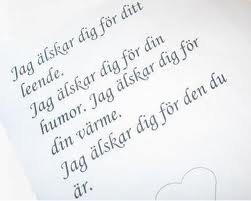 Jag älskar dig för ditt
leende.
Jag älskar dig för din
humor. Jag älskar dig för
din värme.
Jag älskar dig för den du
är.